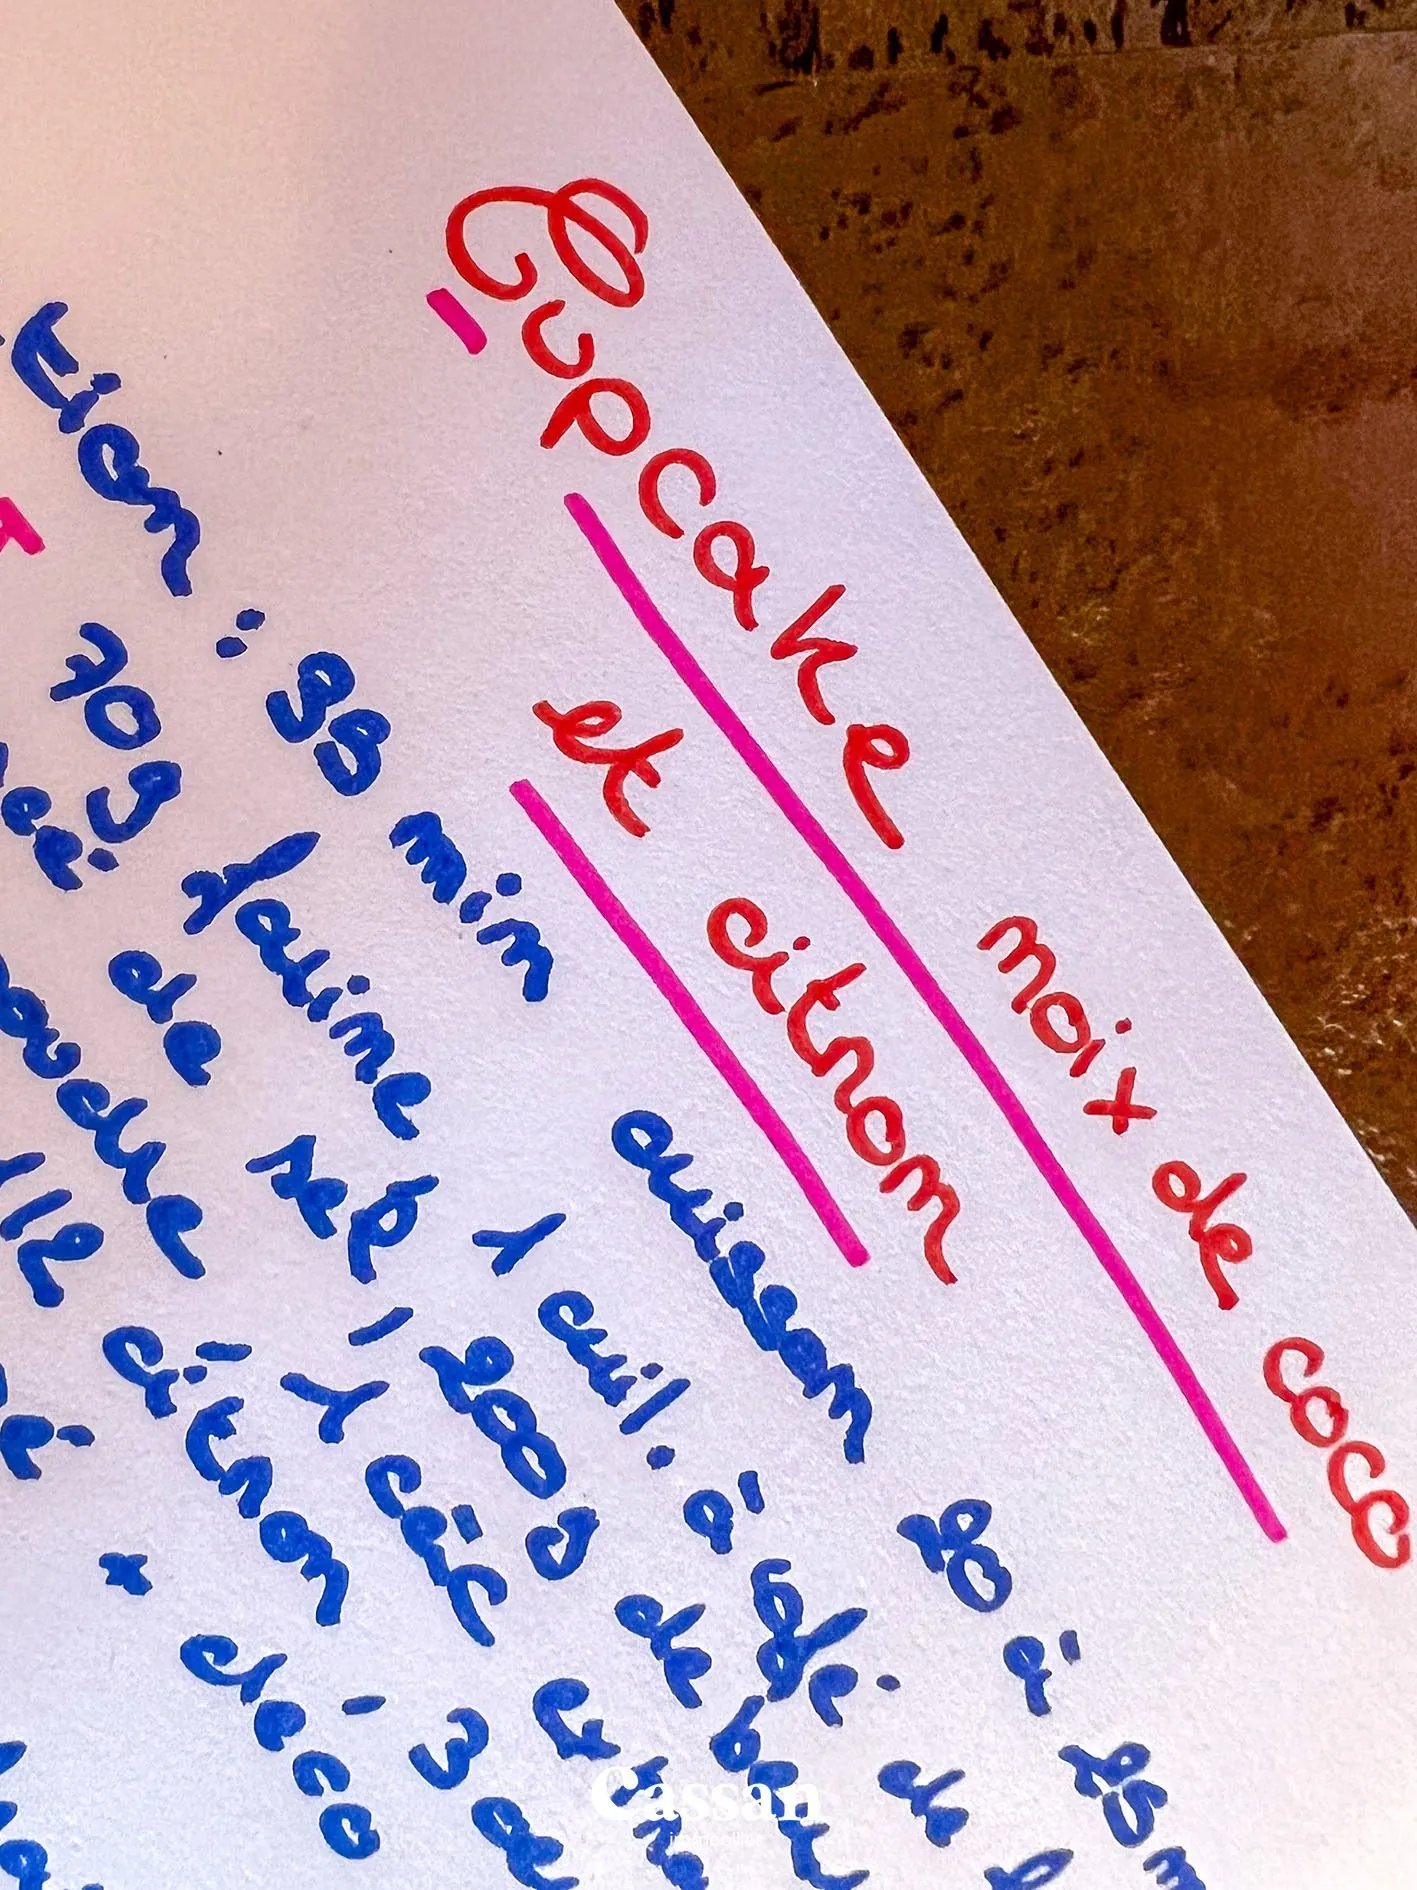 Cupcake noix de coco
et citron
tion : 35 min cuisson 20 à 25 m
70g farine 1 cuil. à café de l
de sel, 200g de beu
oudre 1 càc extra
lle citron, 3 œ
+ déco
Cassan